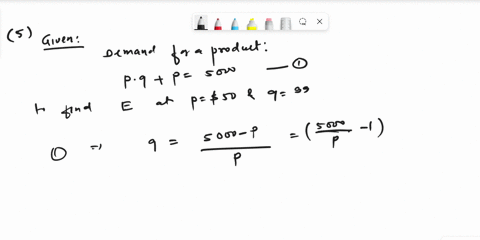 (5) Given:
Demand for a product:
p.q + p = 5000 —①
to find E at p=$50 & q=99
① ⇒ q = (5000-p)/p = (5000/p -1)